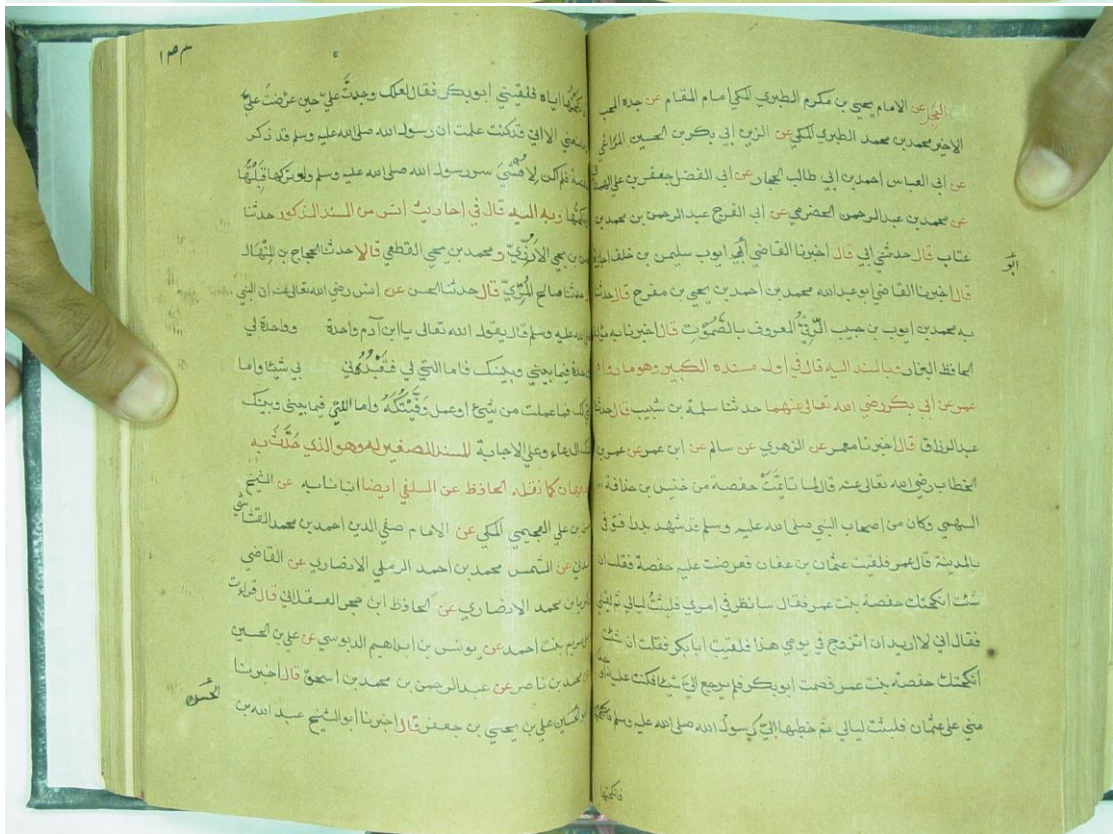 عن الامام يحيى بن مكرم الطبري المكي امام المقام عن جده المحب
الاخير محمد بن محمد الطبري المكي عن الزين ابي بكر بن الحسين المراغي
عن ابي العباس احمد بن ابي طالب الحجار عن ابي الفضل جعفر بن علي الهمداني
عن محمد بن عبدالرحمن الحضرمي عن ابي الفرج عبدالرحمن بن محمد بن
عتاب قال حدثني ابي قال اخبرنا القاضي ابي ايوب سليمن بن خلف
ابو
قال اخبرنا القاضي ابو عبدالله محمد بن احمد بن يحيى بن مفرح قال حدثنا
به محمد بن ايوب بن حبيب الرَّقِّيُّ المعروف بالصَّمُوْتِ قال اخبرنا به مؤلفه
الحافظ البزار وبالسند اليه قال في اول مسنده الكبير وهو ما رواه
عمر عن أبي بكر رضي الله تعالى عنهما حدثنا سلمة بن شبيب قال حدثنا
عبدالرزاق قال اخبرنا معمر عن الزهري عن سالم عن ابن عمر عن عمر بن
الخطاب رضي الله تعالى عنه قال لما تأيَّمَتْ حفصة من خنيس بن حذافة
السهمي وكان من اصحاب النبي صلى الله عليه وسلم قد شهد بدرا فتوفى
بالمدينة قال عمر فلقيت عثمان بن عفان فعرضت عليه حفصة فقلت ان
شئت انكحتك حفصة بنت عمر فقال سانظر في امري فلبثتُ ليالي ثم لقيني
فقال اني لا اريد ان اتزوج في يومي هذا فلقيت ابا بكر فقلت ان شئت
انكحتك حفصة بنت عمر فصمت ابوبكر فلم يرجع اليَّ شيئا فكنت عليه
مني على عثمان فلبثت ليالي ثم خطبها اليَّ رسول الله صلى الله عليه وسلم
فانكحتها
اياه فلقيني ابوبكر فقال لعلك وجدتَّ عليّ حين عرضتَ عليَّ
الا اني قد كنت علمت ان رسول الله صلى الله عليه وسلم قد ذكر
فلم اكن لافشي سر رسول الله صلى الله عليه وسلم ولو تركها قبلتُها
وبه اليه قال في احاديث انس من المسند المذكور حدثنا
بن يحيى الاَرُزِّيُّ و محمد بن يحيى القطعي قالا حدثنا الحجاج بن المنهال
حدثنا صالح المُرّيّ قال حدثنا الحسن عن انس رضي الله تعالى عنه ان النبي
الله عليه وسلم قال يقول الله تعالى يا ابن آدم واحدة وواحدة لي
فيما بيني وبينك فاما التي لي فتَعْبُدُنِي بي شيئا واما
لك فما عملت من شيء او عمل وَفَّيْتُكَهُ واما التي فيما بيني وبينك
الدعاء وعلي الاجابة المسند الصغير له وهو الذي حَدَّثَ به
كما نقله الحافظ عن السلفي ايضا انبانا به عن الشيخ
بن علي العجيمي المكي عن الامام صفي الدين احمد بن محمد القشاشي
عن الشمس محمد بن احمد الرملي الانصاري عن القاضي
بن محمد الانصاري عن الحافظ ابن حجر العسقلاني قال قراءت
مريم بنت احمد عن يونس بن ابراهيم الدبوسي عن علي بن الحسين
محمد بن ناصر عن عبدالرحمن بن محمد بن اسحق قال اخبرنا
ابو الحسين علي بن يحيى بن جعفر قال اخبرنا ابو الشيخ عبد الله بن